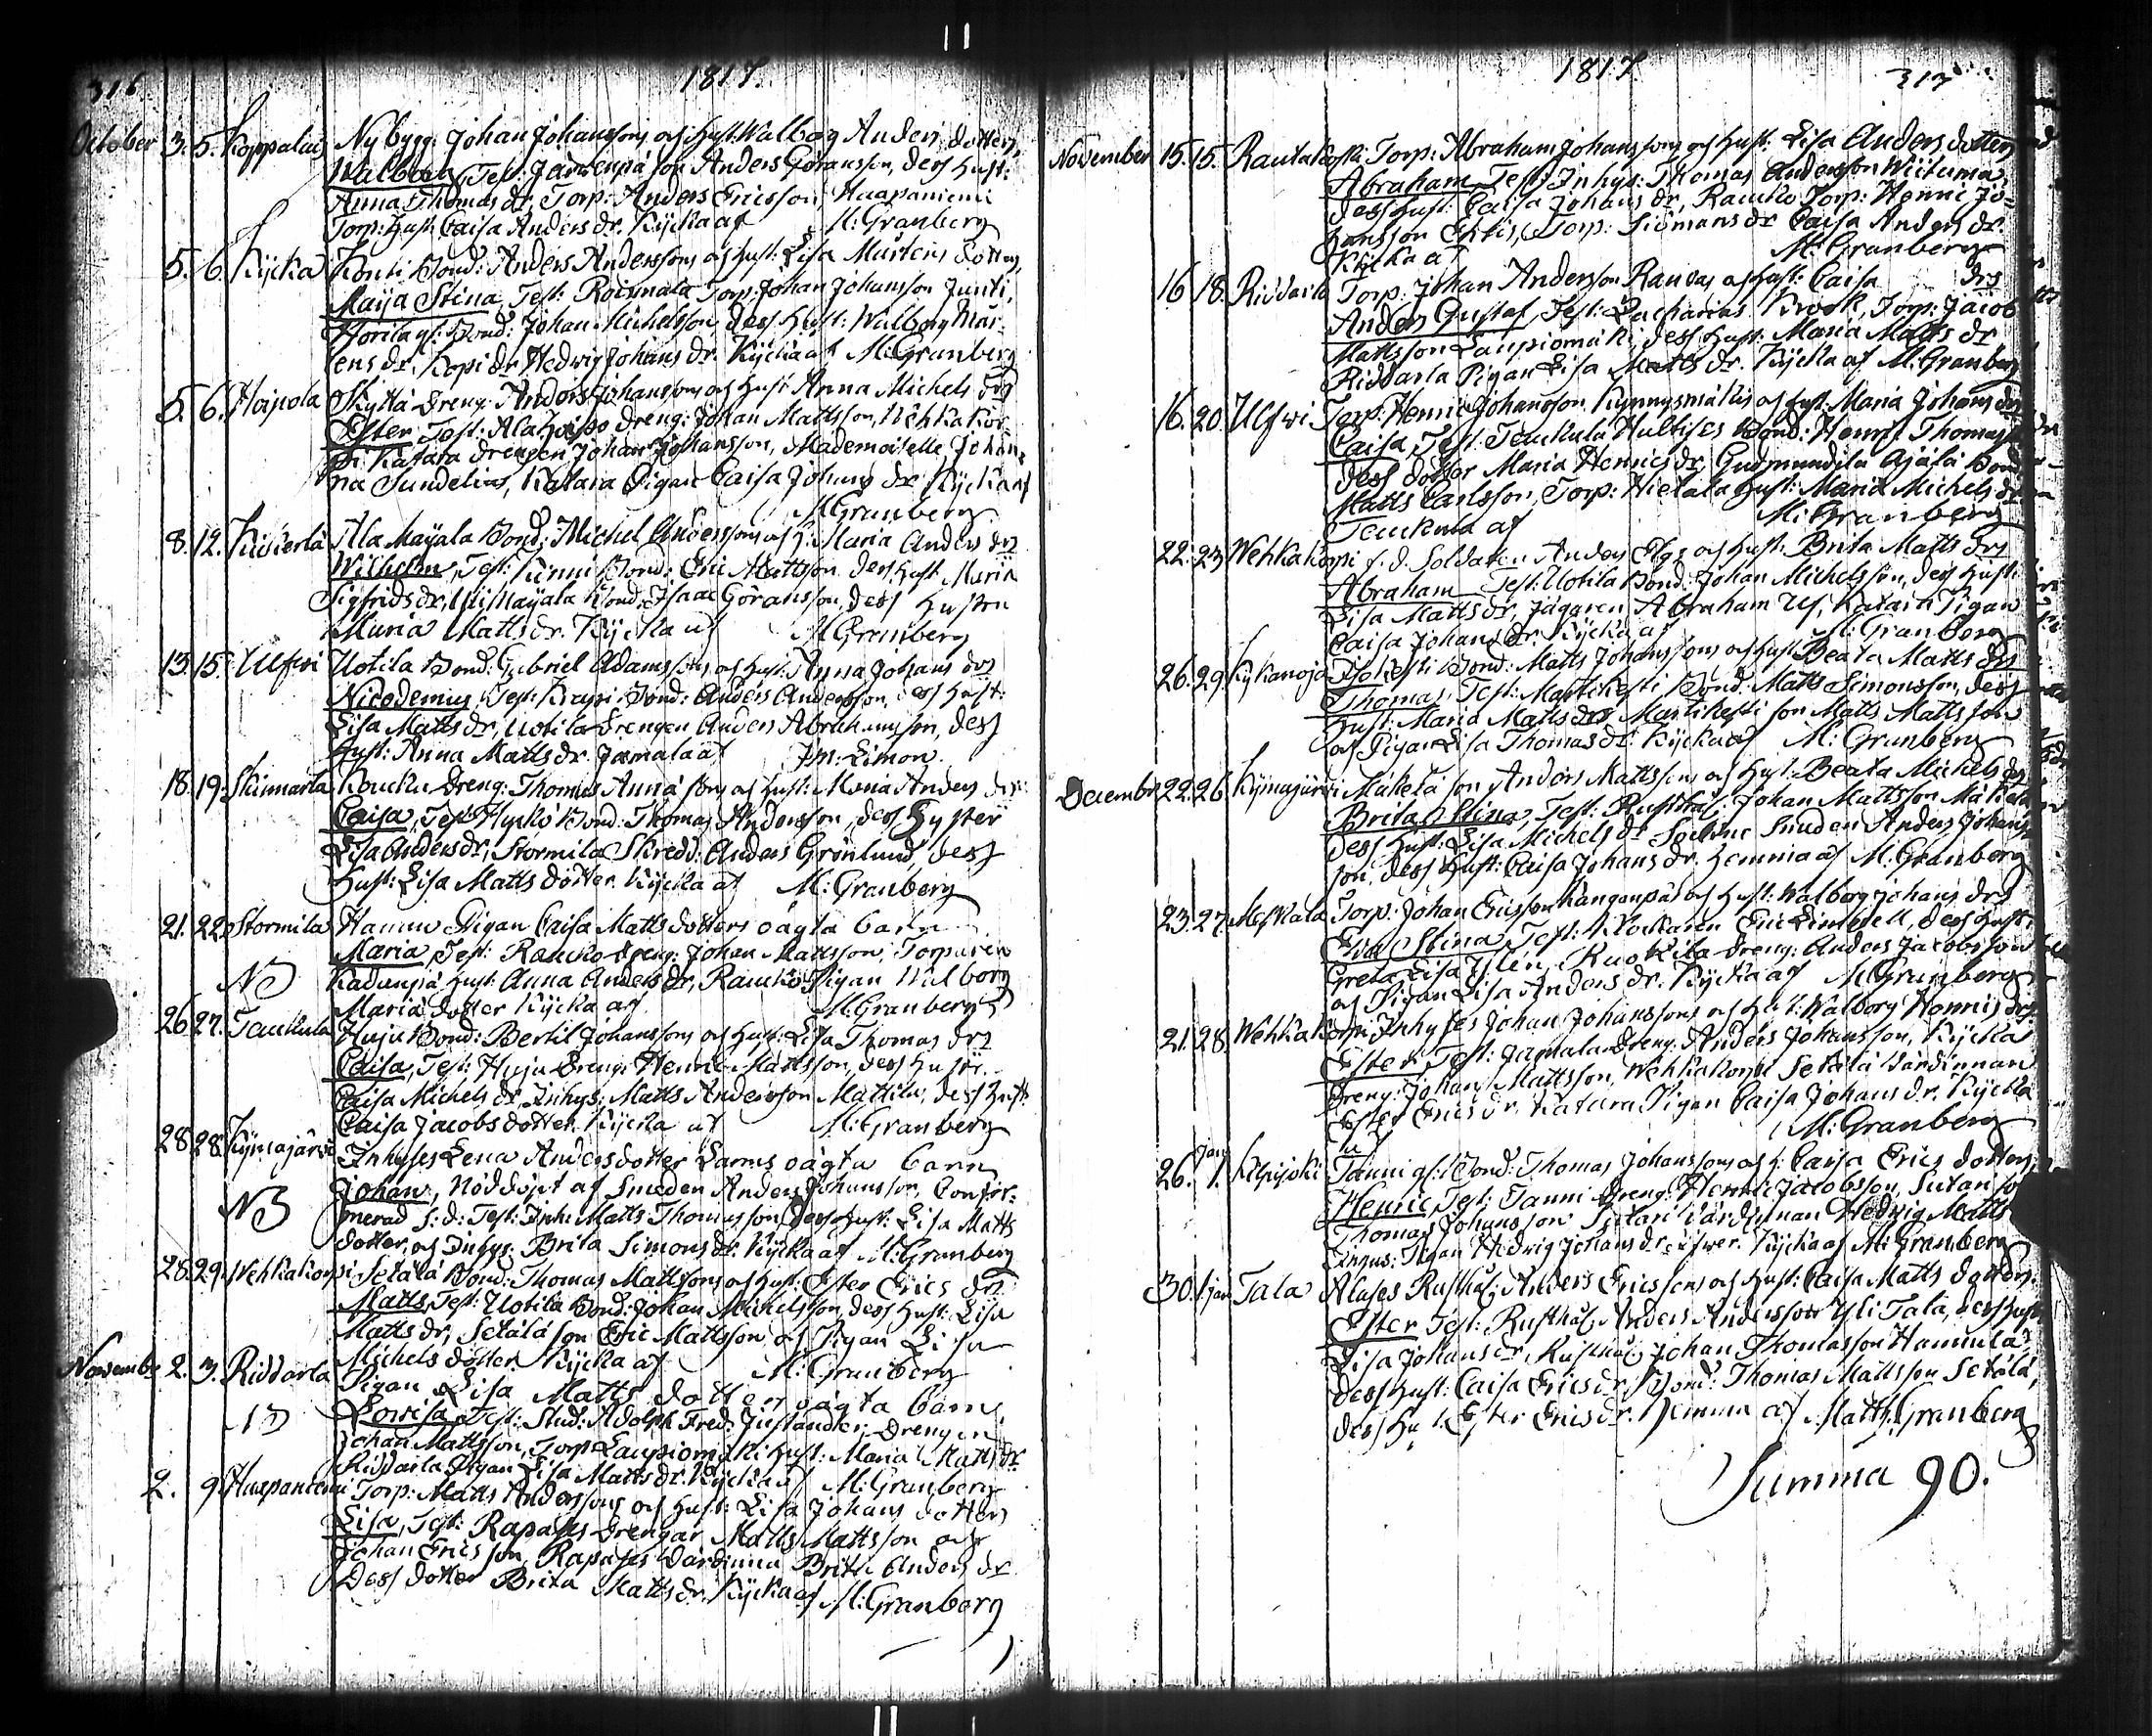 316
1817.
October 3. 5. Koppalais Nybygg: Johan Johanssons och Hust. Walborg Anders dotters
Walborg, Test: Järwenpä son Anders Göransson, dess Hust:
Anna Thomas dr, Torp: Anders Ericsson, Haapaniemi
Torp: Hust. Caisa Anders dr. Kyrka af M: Granberg
5. 6. Kyrka Konti Bond: Anders Anderssons och Hust: Lisa Mårtens dotters
Maija Stina, Test: Roismala Torp: Johan Johansson Junti,
Horila Bond: Johan Michelsson, dess Hust: Walborg Mår-
tens dr. Kopi dr Hedwig Johans dr. Kyrka af M: Granberg
5. 6. Hoipola Skyttä Dreng: Anders Johanssons och Hust: Anna Michels drs
Ester, Test: Ala Dreng: Johan Mattsson, Wehkakor-
pi Katara Drengen Johan Johansson, Mademoiselle Johan-
na Sundelius, Katara Pigan Caisa Johans dr Kyrka af
M: Granberg
8. 12. Kiikerlä Ala Mayala Bond: Michel Anderssons och H: Maria Anders drs
Wilhelm, Test: Bond: Eric Mattsson dess Hust Maria
Sigfrids dr, Uli Mayala Bond: Isaac Göransson, dess Hustru
Maria Matts dr. Kyrka af M: Granberg
13. 15. Ulfwi Uotila Bond: Gabriel Adamssons och Hust: Anna Johans drs
Nicodemus, Test: Krapi Bond: Anders Andersson, dess Hust:
Lisa Matts dr, Uotila Drengen Anders Abrahamsson, dess
Hust: Anna Matts dr. Jamala af Limon.
18. 19. Skinnarla Kouku Dreng: Thomas Anna sons och Hust: Maria Anders drs
Caisa, Test: Hyrkö Bond: Thomas Andersson, dess Syster
Lisa Anders dr, Stormila Skredd: Anders Grönlund, dess
Hust: Lisa Matts dotter. Kyrka af M: Granberg
21. 22. Stormila Hannu Pigan Caisa Matts dotters oägta barn
Maria, Test: Rancko Dreng: Johan Mattsson, Torparen
NB Hust: Anna Anders dr, Rancko Pigan Walborg
Maria dotter Kyrka af M: Granberg
26. 27. Tenkula Huju Bond: Bertil Johanssons och Hust: Lisa Thomas drs
Caisa, Test: Huju Dreng: Henric Mattsson, dess Hustr:
Caisa Michels dr, Inhys: Matts Andersson Mattila, dess Hust:
Caisa Jacobs dotter. Kyrka af M: Granberg
28. 28. Kymajärwi Inhyses Lena Anders dotter Larms oägta barn
Johan, Nöddöpt af Smeden Anders Johansson, Confir-
NB merad s: d: Test: Inh: Matts Thomasson, dess Hust: Lisa Matts
dotter, och Inhys: Brita Simons dr. Kyrka af M: Granberg
28. 29. Wehkakorpi Setälä Bond: Thomas Mattssons och Hust: Ester Erics drs
Matts, Test: Uotila Bond: Johan Michelsson, dess Hust: Lisa
Matts dr, Setälä son Eric Mattsson och Pigan Lisa
Michels dotter. Kyrka af M: Granberg
Novembr 2. 3. Riddarla Pigan Lisa Matts dotter oägta barn
NB Lowisa, Test: Stud: Adolph Fred: Juslander, Drengen
Johan Mattsson, Torp: Laupiomäki Hust: Maria Matts dr
Riddarla Pigan Lisa Matts dr. Kyrka af M: Granberg
2. 9. Haapaniemi Torp: Matts Anderssons och Hust: Lisa Johans dotters
Lisa, Test: Rapases Drengar Matts Mattsson och
Johan Ericsson, Rapases Wärdinna Brita Anders dr
Dess dotter Brita Matts dr. Kyrka af M: Granberg
1817
317
November 15. 15. Rautakoski Torp: Abraham Johanssons och Hust: Lisa Anders dotters
Abraham, Test: Inhys: Thomas Andersson Wiituma,
dess Hust: Caisa Johans dr, Rancko Torp: Henric Jo-
hansson Eskis, Torp: Simans dr Caisa Anders dr.
Kyrka af M: Granberg
16. 18. Riddarla Torp: Johan Andersson Ranvas och Hust: Caisa drs
Anders Gustaf, Test: Zacharias Krook, Torp: Jacob
Mattsson Laupiomäki, dess Hust: Maria Matts dr
Riddarla Pigan Lisa Matts dr. Kyrka af M: Granberg
16. 20. Ulfwi Torp: Henric Johansson Kynnysmäkis och Hust: Maria Johans drs
Caisa, Test: Tenkula Bond: Henric Thomasson
dess dotter Maria Henrics dr, Gudmundila Ajälä Bond:
Matts Carlsson, Torp: Hietala Hust: Maria Michels dr
Tenkula af M: Granberg
22. 23. Wehkakorpi f. d. Soldaten Anders Elgs och Hust: Brita Matts drs
Abraham, Test: Uotila Bond: Johan Michelsson, dess Hust:
Lisa Matts dr, Jägaren Abraham Ulf, Katara Pigan
Caisa Johans dr. Kyrka af M: Granberg
26. 29. Kykanoja Bond: Matts Johanssons och Hust: Beata Matts drs
Thomas, Test: Martikesti Bond: Matts Simonsson, dess
Hust: Maria Matts dr, Martikesti son Matts Mattsson
och Pigan Lisa Thomas dr. Kyrka af M: Granberg
December 22. 26. Kymajärwi Mäkelä son Anders Mattssons och Hust: Beata Michels drs
Brita Stina, Test: Rusthål: Johan Mattsson Mäkelä
dess Hust: Lisa Michels dr Smeden Anders Johans-
son, dess Hust: Caisa Johans dr. Hemma af M: Granberg
23. 27. Meskala Torp: Johan Ericsson Kangenpäs och Hust: Walborg Johans drs
Eva Stina, Test: Klockaren Eric Limnell, dess Hust:
Greta Lisa Ylén, Ruokila Dreng: Anders Jacobsson
och Pigan Lisa Anders dr. Kyrka af M: Granberg
21. 28. Wehkakorpi Inhyses Johan Johanssons och Hust: Walborg Henrics drs
Ester, Test: Jamala Dreng: Anders Johansson, Kyrka
Dreng: Johan Mattsson, Wehkakorpi Setälä Wärdinnan
Ester Erics dr, Katara Pigan Caisa Johans dr. Kyrka
af M: Granberg
26. Jan 1. Tanni Bond: Thomas Johanssons och H: Caisa Erics dotters
Henric, Test: Tanni Dreng: Henric Jacobsson,
Thomas Johansson Wärdinnan Hedwig Matts
Pigan Hedwig Johans dr öfwer. Kyrka af M: Granberg
30. 1 jan Tala Alases Rusthål: Anders Ericssons och Hust: Caisa Matts dotters
Ester, Test: Rusthål: Anders Andersson Yli Tala, dess Hust
Lisa Johans dr, Rusthål: Johan Thomasson Hannula,
dess Hust: Caisa Erics dr, Bond: Thomas Mattsson Setälä,
dess Hust: Ester Erics dr. Hemma af Matth: Granberg
Summa 90.